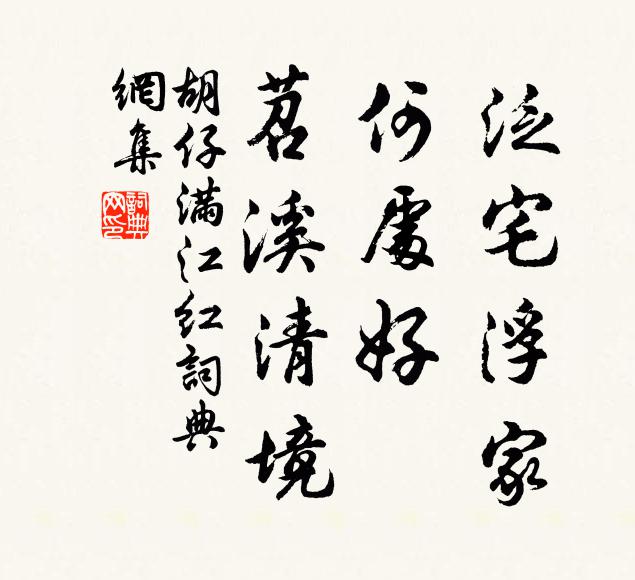 泛宅浮家
何處好
苕溪清境
胡仔滿江红詞典
網集
詞典
网印